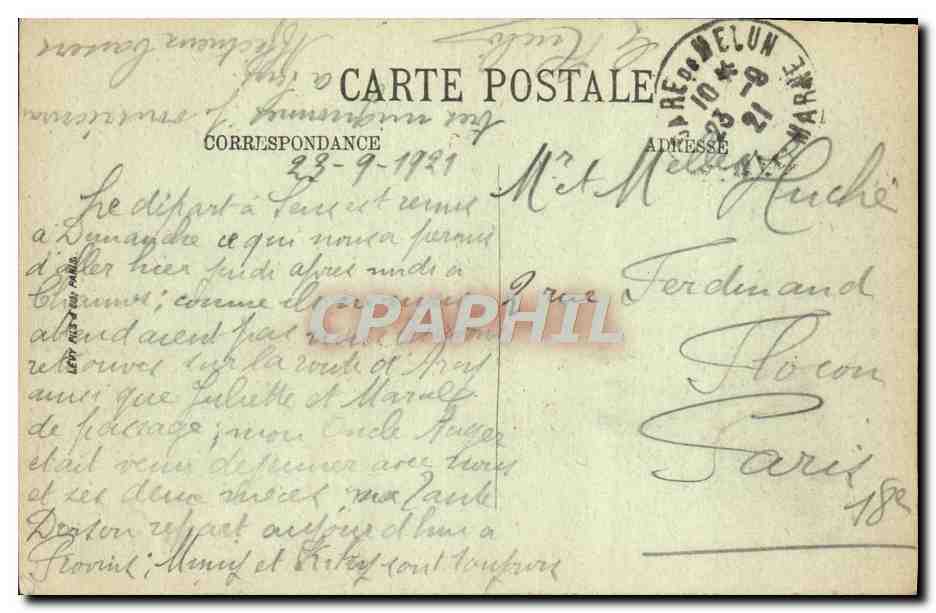 CARTE POSTALE
CORRESPONDANCE
ADRESSE
GARE DE MELUN
10 *
23 -9
21
MARNE
LEVY FILS & Cie PARIS
23-9-1921
Le départ à Sens est remis
à Dimanche ce qui nous a permis
d'aller hier jeudi après midi à
Chaumes; comme ils ne nous
attendaient pas nous
retrouvés sur la route d'
ainsi que Juliette et
de passage; mon Oncle
était venu déjeuner avec nous
et ses deux nièces, ma Tante
repart aujourd'hui à
Provins; Mimy et Kiky sont toujours
très mignonnes. Je
Mr et Melle Huché
2 rue Ferdinand
Flocon
Paris
18e
CPAPHIL